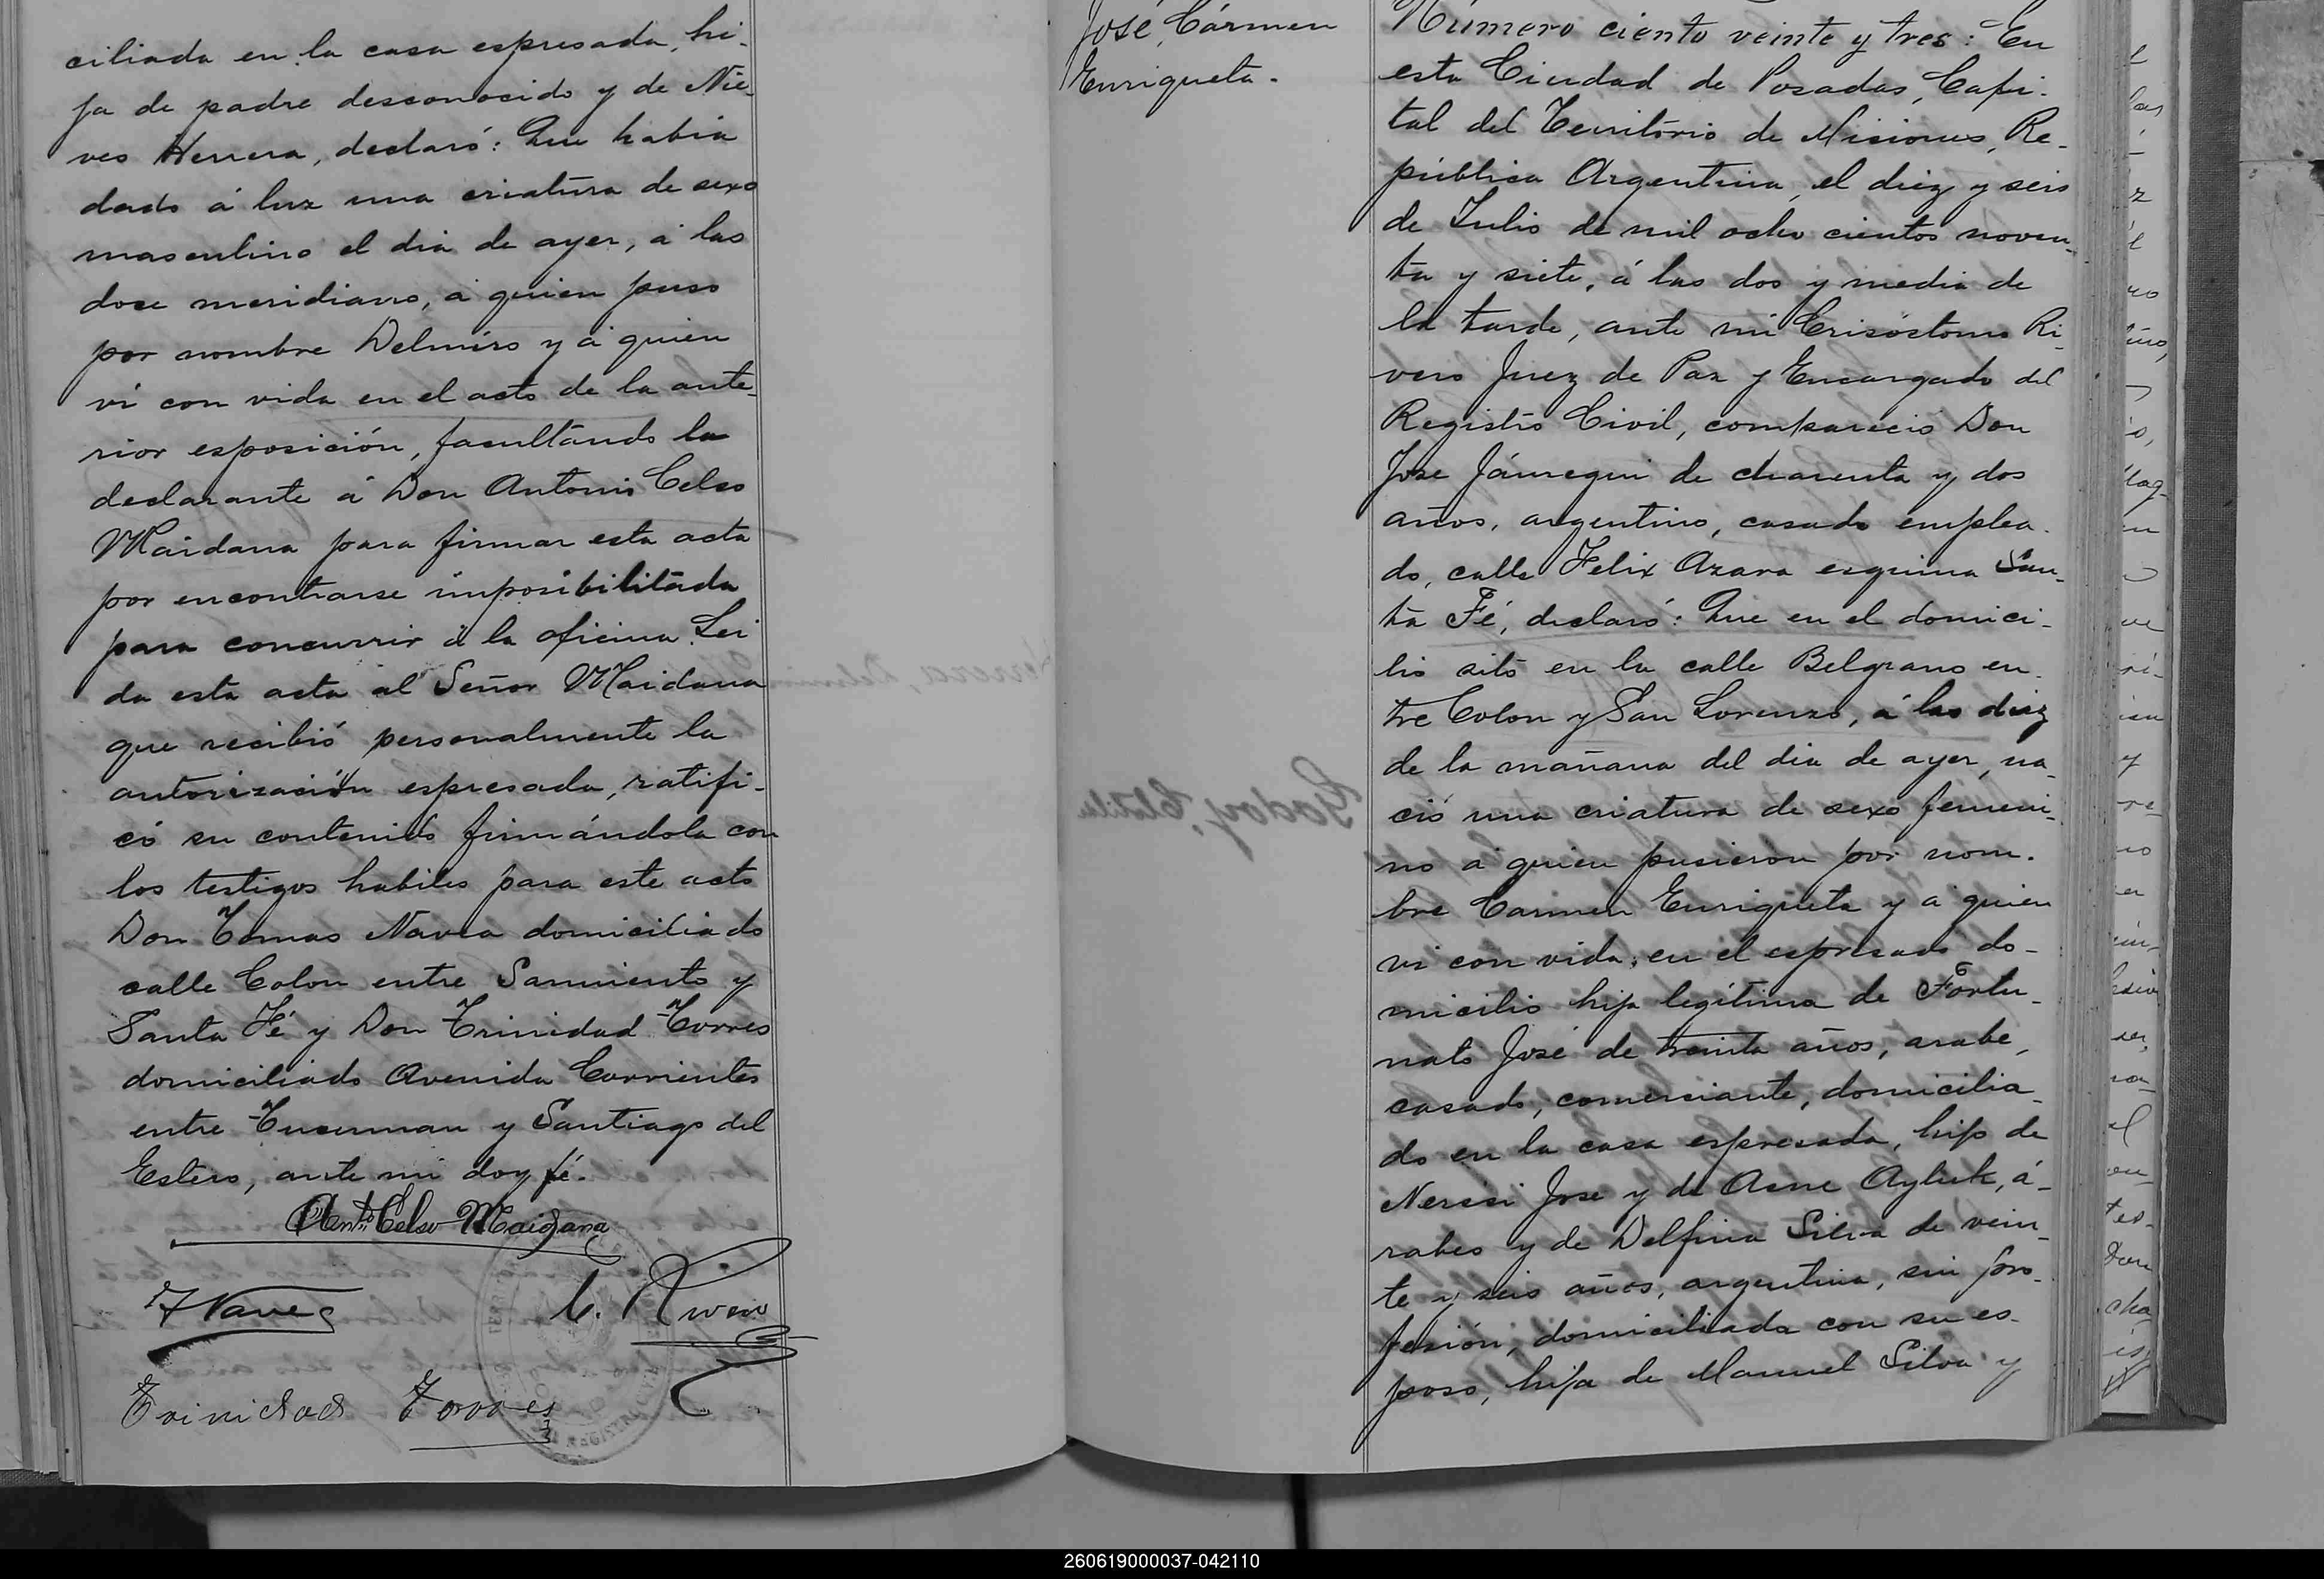 ciliada en la casa espresada, hi-
ja de padre desconocido y de Nie-
ves Herrera, declaró: Que habia
dado á luz una criatura de sexo
masculino el dia de ayer, á las
doce meridiano, á quien puso
por nombre Delmiro y á quien
ví con vida en el acto de la ante-
rior esposición, facultando la
declarante á Don Antonio Celso
Maidana para firmar esta acta
por encontrarse imposibilitada
para concurrir á la oficina. Lei
da esta acta al Señor Maidana
que recibió personalmente la
autorización espresada, ratifi-
có su contenido firmándola con
los testigos habiles para este acto
Don Tomas Navea domiciliado
calle Colon entre Sarmiento y
Santa Fé y Don Trinidad Torres
domiciliado Avenida Corrientes
entre Tucuman y Santiago del
Estero, ante mi doy fé.
Ant.º Celso Maidana
T Navea
C. Rivero
Trinidad Torres
José, Cármen
Enriqueta.
Número ciento veinte y tres: En
esta Ciudad de Posadas, Capi-
tal del Territorio de Misiones, Re-
pública Argentina, el diez y seis
de Julio de mil ocho cientos noven-
ta y siete, á las dos y media de
la tarde, ante mi Crisóstomo Ri-
vero Juez de Paz y Encargado del
Registro Civil, compareció Don
Jose Jáuregui de cuarenta y dos
años, argentino, casado emplea-
do, calle Felix Azara esquina San-
ta Fé, declaró: Que en el domici-
lio sito en la calle Belgrano en-
tre Colon y San Lorenzo, á las diez
de la mañana del dia de ayer, na-
ció una criatura de sexo femeni-
no á quien pusieron por nom-
bre Carmen Enriqueta y á quien
vi con vida; en el espresado do-
micilio hija legítima de Fortu-
nato José de treinta años, arabe,
casado, comerciante, domicilia-
do en la casa espresada, hijo de
Jose y de á-
rabes y de Delfina Silva de vein-
te y seis años, argentina, sin pro-
fesión, domiciliada con su es-
poso, hija de Manuel Silva y
260619000037-042110